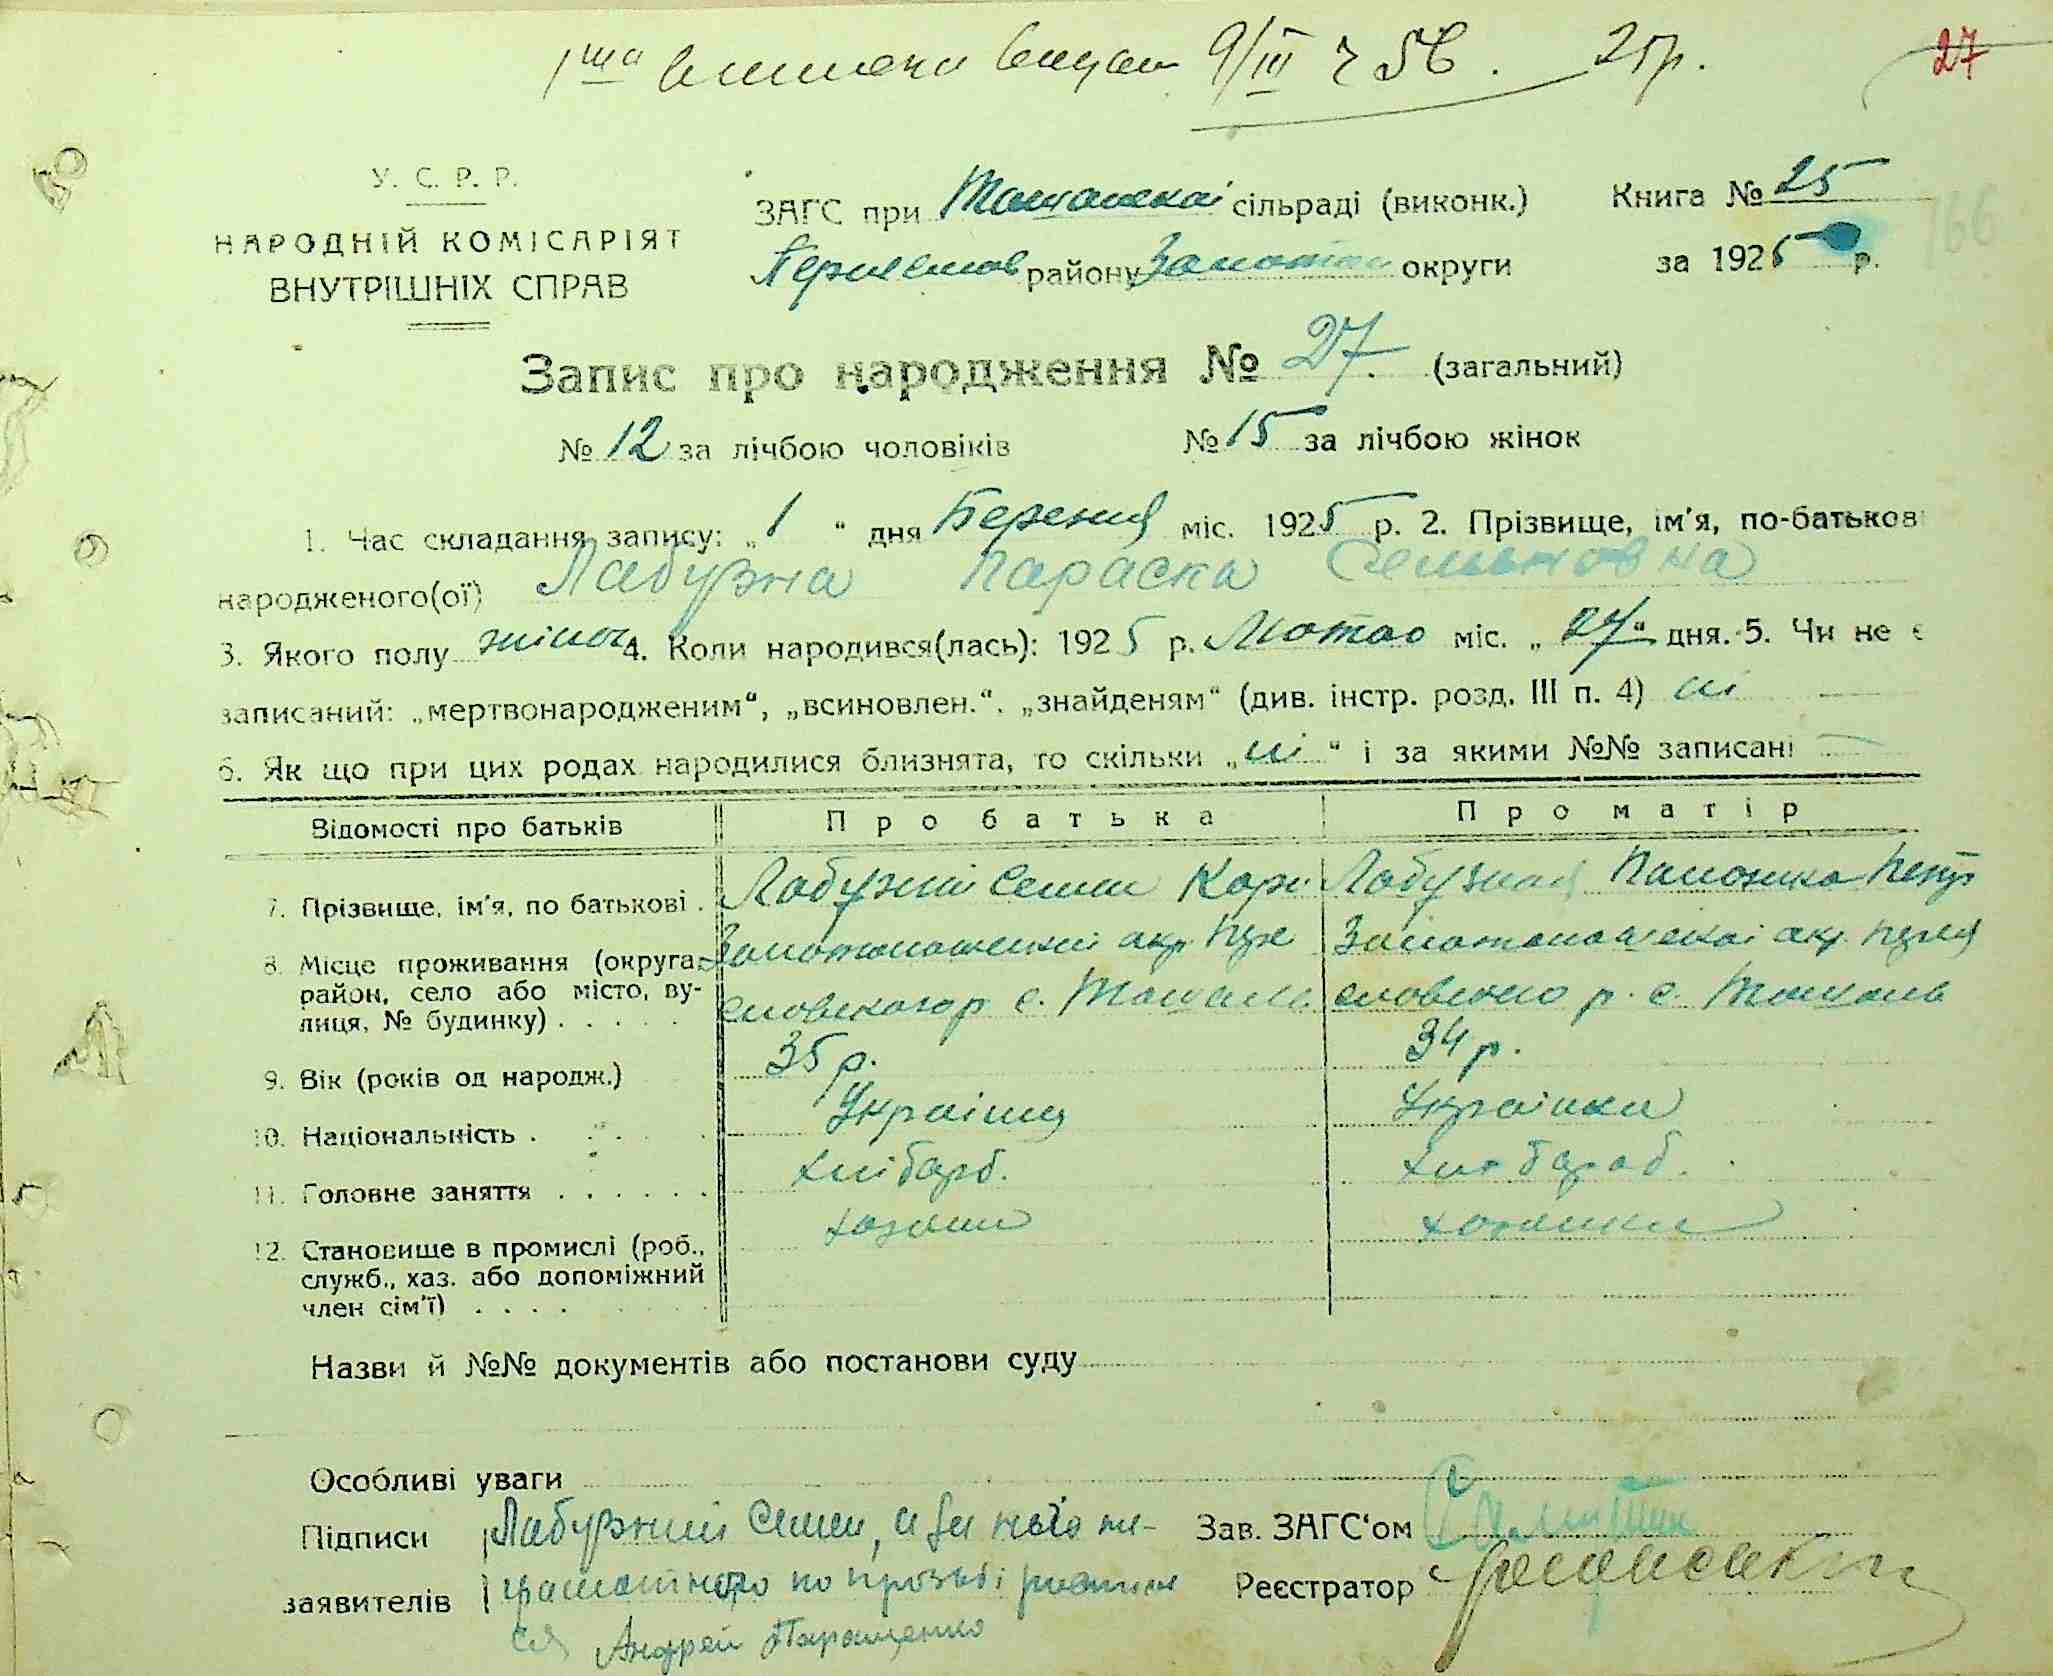 9/III 56. 25р.
27
У. С. Р. Р.
НАРОДНІЙ КОМІСАРІЯТ
ВНУТРІШНІХ СПРАВ
ЗАГС при Ташанскої сільраді (виконк.) Книга № 25
166
району Золотон округи за 1925 р.
Запис про народження № 27. (загальний)
№ 12 за лічбою чоловіків № 15 за лічбою жінок
1. Час складання запису: „ 1 “ дня Березня міс. 1925 р. 2. Прізвище, ім'я, по-батькові
народженого(ої) Лабузна Параска Семьновна
3. Якого полу жіноч 4. Коли народився(лась): 1925 р. Лютого міс. „ 27 “ дня. 5. Чи не є
записаний: „мертвонародженим“, „всиновлен.“, „знайденям“ (див. інстр. розд. III п. 4) ні
6. Як що при цих родах народилися близнята, то скільки „ ні “ і за якими №№ записані —
Відомості про батьків Про батька Про матір
7. Прізвище, ім'я, по батькові . Лабузний Семен Карп Лабузная Петр
8. Місце проживання (округа, Золотоношскої окр. Пере Золотоношскої окр. Перея
район, село або місто, ву- славского р с. Ташань славского р. с. Ташань
лиця, № будинку) . . . . .
9. Вік (років од народж.) 35 р. 34 р.
10. Національність . . . . Українец Українка
11. Головне заняття . . . . . . хліборб. хлібороб.
12. Становище в промислі (роб., хозяин хозяика
служб., хаз. або допоміжний
член сім'ї) . . . .
Назви й №№ документів або постанови суду
Особливі уваги
Підписи Лабузний Семен, а за него не- Зав. ЗАГС‘ом
заявителів грамотного по прозьбі росписав Реєстратор
ся Андрей Паращенко